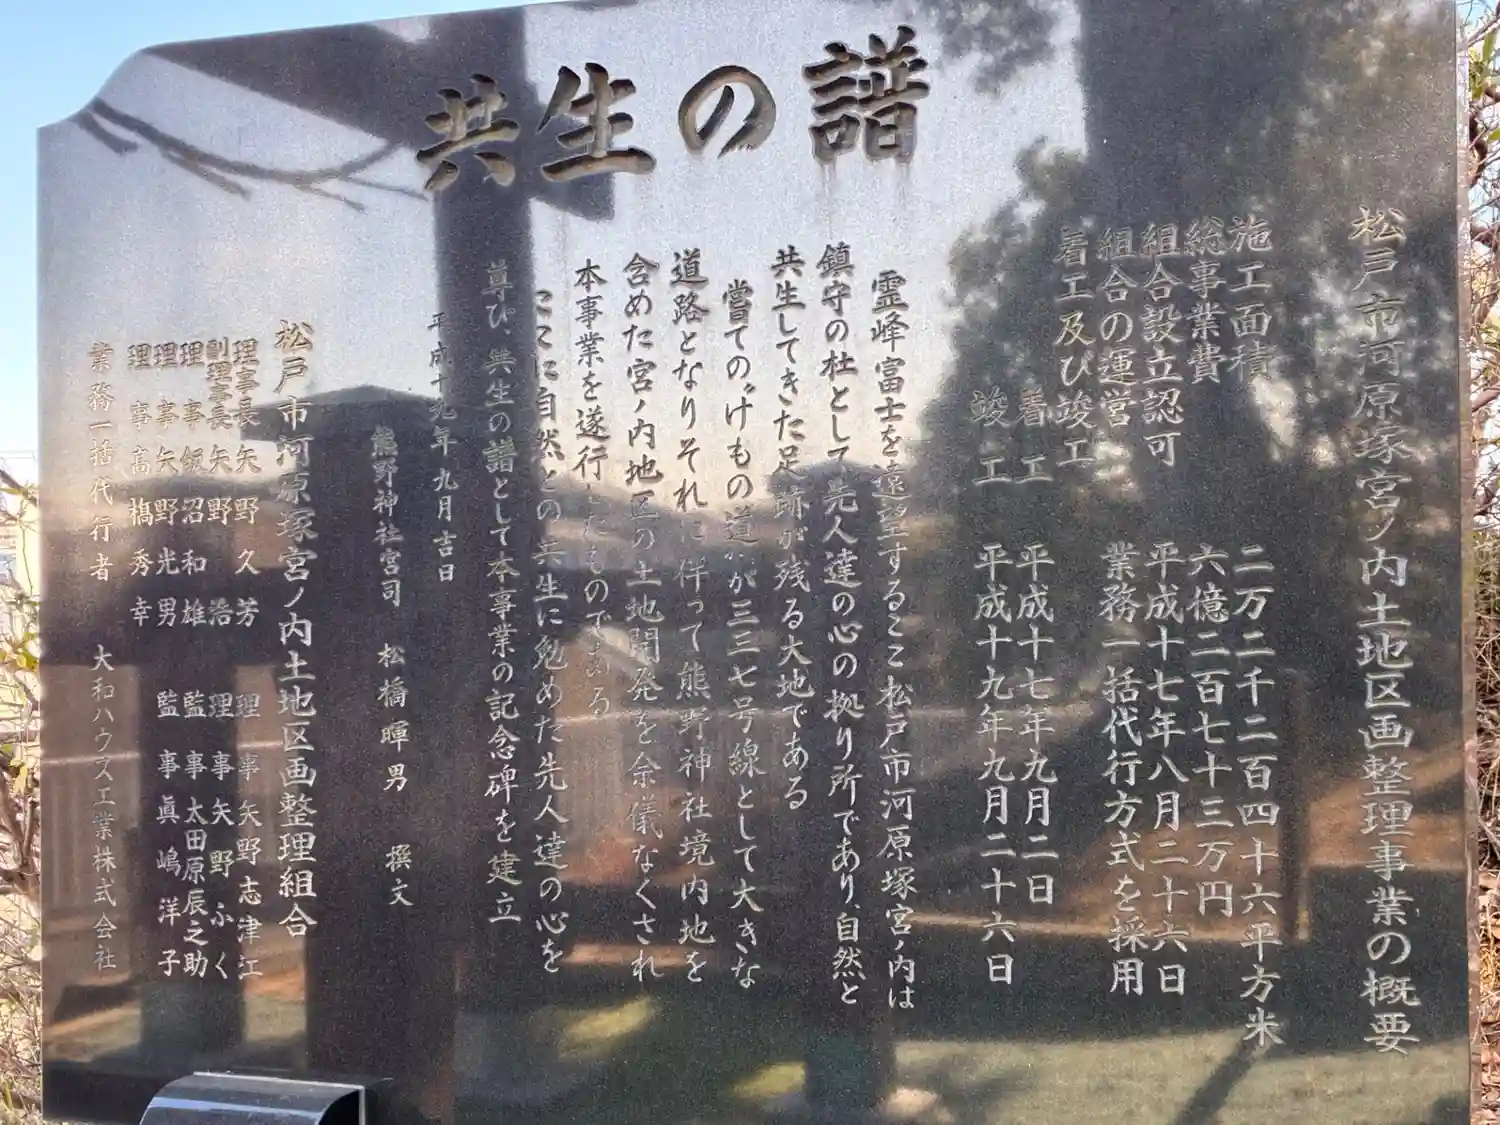 共生の譜
松戸市河原塚宮ノ内土地区画整理事業の概要
施工面積 二万二千二百四十六平方米
総事業費 六億二百七十三万円
組合設立認可 平成十七年八月二十六日
組合の運営 業務一括代行方式を採用
着工及び竣工
着工 平成十七年九月二日
竣工 平成十九年九月二十六日
霊峰富士を遠望するここ松戸市河原塚宮ノ内は
鎮守の杜として先人達の心の拠り所であり、自然と
共生してきた足跡が残る大地である
嘗ての〝けもの道〟が三三七号線として大きな
道路となりそれに伴って熊野神社境内地を
含めた宮ノ内地区の土地開発を余儀なくされ
本事業を遂行したものである
ここに自然との共生に勉めた先人達の心を
尊び、共生の譜として本事業の記念碑を建立
平成十九年九月吉日
熊野神社宮司 松橋暉男 撰文
松戸市河原塚宮ノ内土地区画整理組合
理事長 矢野久芳 理事 矢野志津江
副理事長 矢野浩 理事 矢野ふく
理事 飯沼和雄 監事 太田原辰之助
理事 矢野光男 監事 眞嶋洋子
理事 髙橋秀幸
業務一括代行者 大和ハウス工業株式会社